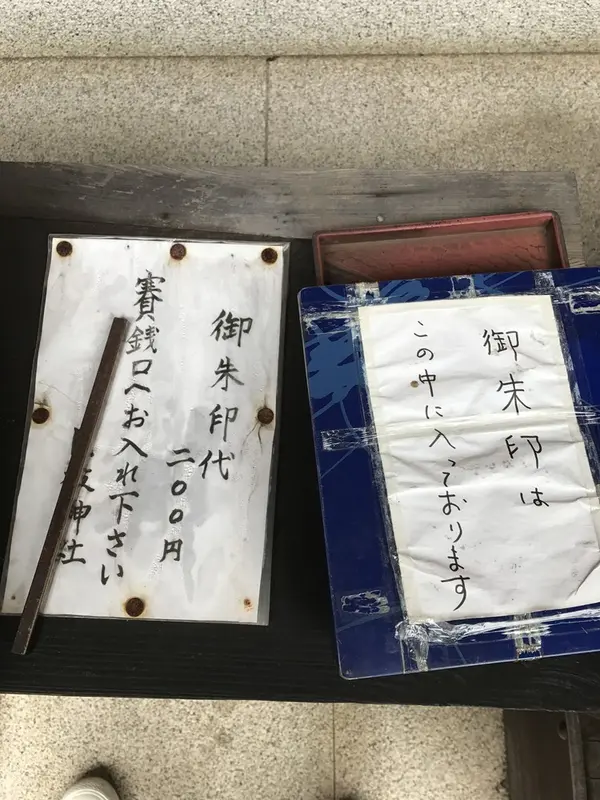 御朱印代
二〇〇円
賽銭口へお入れ下さい
神社
御朱印は
この中に入っております